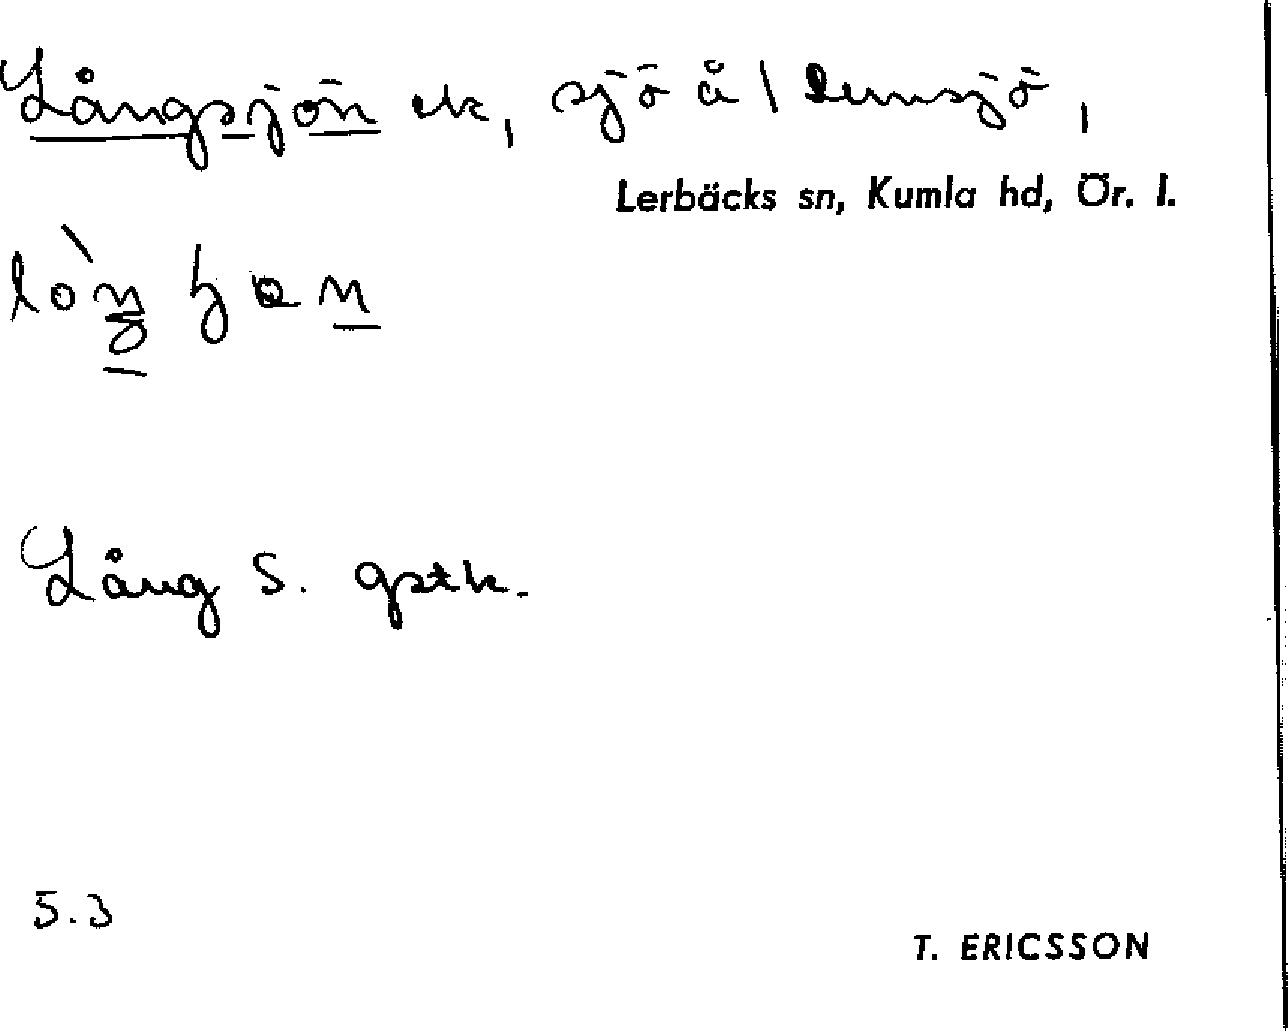 Långsjön ek, sjö å 1
Lerbäcks sn, Kumla hd, Ör. l.
Lång S. gstk.
5.3
T. ERICSSON